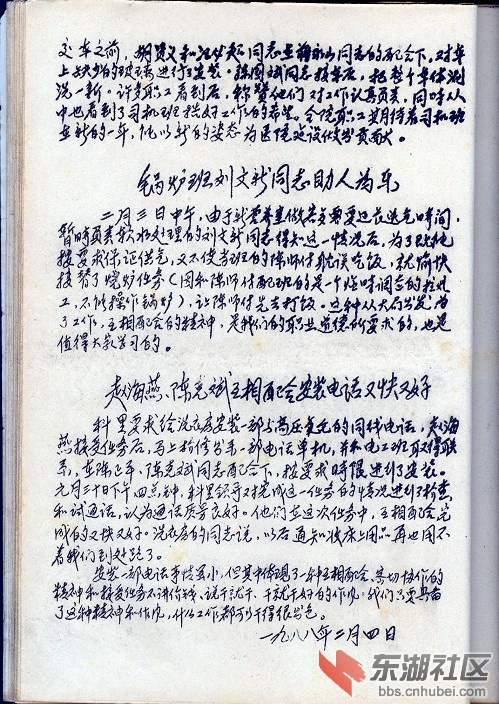 交车之前，胡贤义和汪华超同志在同志的配合下，对车
上缺少的玻璃进行了安装。陈国斌同志接车后，把整个车体测
洗一新。许多职工看到后，称赞他们对工作认真负责，同时从
中也看到了司机班搞好工作的希望。全院职工期待着司机班
在新的一年，能以新的姿态为医院建设作出贡献。
锅炉班刘文新同志助人为乐
二月三日中午，由于营养室做菜需要延长送气时间，
暂时负责软水处理的刘文新同志得知这一情况后，为了
按要求保证供气，又不使当班的陈师付耽误吃饭，就愉快
接替了烧炉任务（因和陈师付配班的是一个临时调来的
工，不能操作锅炉），让陈师付先去打饭。这种从大局出发，为
了工作，互相配合的精神，是我们的职业道德所要求的，也是
值得大家学习的。
赵海燕、陈克斌互相配合安装电话又快又好
科里要求给洗衣房安装一部与高压复克的同线电话，赵海
燕接受任务后，马上检修出来一部电话单机，并和电工班取得联
系，在陈正年、陈克斌同志配合下，按要求时限进行了安装。
元月三十日下午四点钟，科里领导对完成这一任务的情况进行了检查
和试通话，认为通话质量良好。他们在这次任务中，互相配合，完
成的又快又好。洗衣房的同志说，以后通知收床上用品再也用不
着我们到处跑了。
安装一部电话事情虽小，但其中体现了一种互相配合、密切协作的
精神和接受任务不讲价钱，说干就干、干就干好的作风。我们只要具备
了这种精神和作风，什么工作都可以干得很出色。
一九八八年二月四日
东湖社区
bbs.cnhubei.com